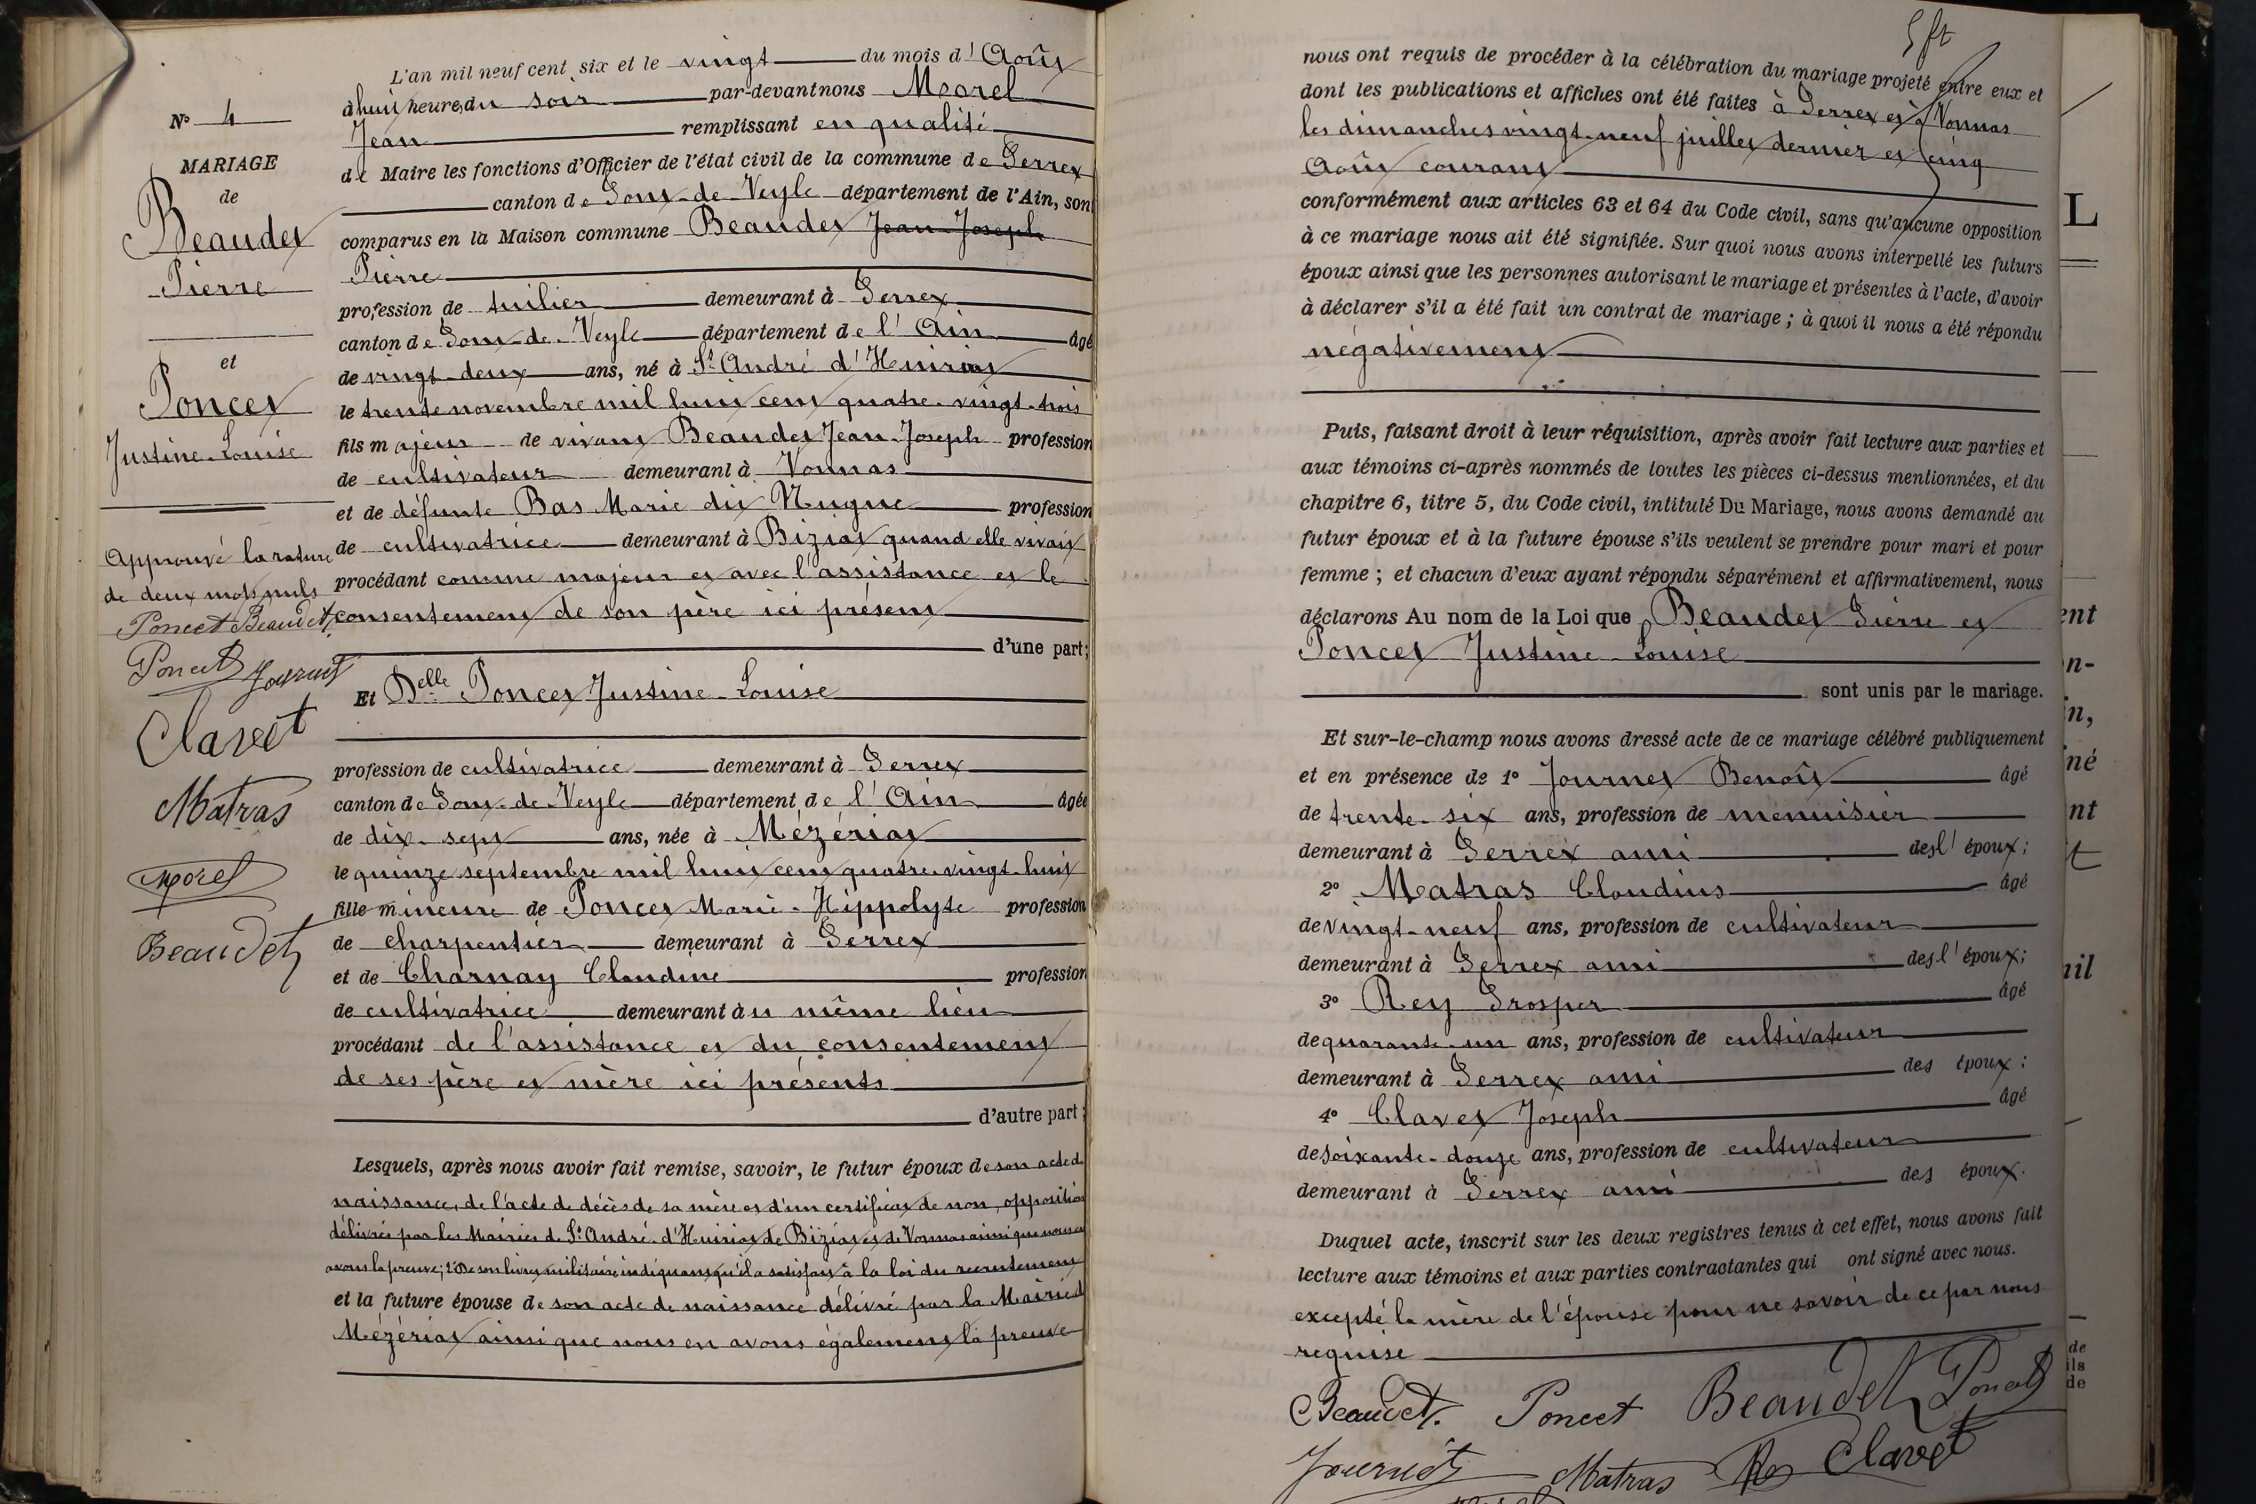 N° 4
MARIAGE
de
Beaudet
Pierre
et
Poncet
Justine-Louise
Approuvé la rature
de deux mots nuls
Poncet Beaudet
Poncet Journet
Clavet
Matras
Morel
Beaudet
L'an mil neuf cent six et le vingt du mois d'Août
à huit heures du soir par-devant nous Morel
Jean remplissant en qualité
de Maire les fonctions d'Officier de l'état civil de la commune de Perrex
canton de Pont-de-Veyle département de l'Ain, sont
comparus en la Maison commune Beaudet Jean-Joseph
Pierre
profession de tuilier demeurant à Perrex
canton de Pont-de-Veyle département de l'Ain âgé
de vingt-deux ans, né à St André d'Huiriat
le trente novembre mil huit cent quatre-vingt-trois
fils majeur de vivant Beaudet Jean-Joseph profession
de cultivateur demeurant à Vonnas
et de défunte Bas Marie dit Nugue profession
de cultivatrice demeurant à Biziat quand elle vivait
procédant comme majeur et avec l'assistance et le
consentement de son père ici présent
d'une part;
Et Delle Poncet Justine-Louise
profession de cultivatrice demeurant à Perrex
canton de Pont-de-Veyle département de l'Ain âgée
de dix-sept ans, née à Mézériat
le quinze septembre mil huit cent quatre-vingt-huit
fille mineure de Poncet Marie-Hippolyte profession
de charpentier demeurant à Perrex
et de Charnay Claudine profession
de cultivatrice demeurant au même lieu
procédant de l'assistance et du consentement
de ses père et mère ici présents
d'autre part;
Lesquels, après nous avoir fait remise, savoir, le futur époux de son acte de
naissance, de l'acte de décès de sa mère et d'un certificat de non, opposition
délivrés par les Mairies de St André-d'Huiriat de Biziat et de Vonnas ainsi que nous en
avons la preuve; 2° De son livret militaire indiquant qu'il a satisfait à la loi du recrutement
et la future épouse de son acte de naissance délivré par la Mairie de
Mézériat ainsi que nous en avons également la preuve
5 ft
nous ont requis de procéder à la célébration du mariage projeté entre eux et
dont les publications et affiches ont été faites à Perrex et à Vonnas
les dimanches vingt-neuf juillet dernier et cinq
Août courant
conformément aux articles 63 et 64 du Code civil, sans qu'aucune opposition
à ce mariage nous ait été signifiée. Sur quoi nous avons interpellé les futurs
époux ainsi que les personnes autorisant le mariage et présentes à l'acte, d'avoir
à déclarer s'il a été fait un contrat de mariage; à quoi il nous a été répondu
négativement
Puis, faisant droit à leur réquisition, après avoir fait lecture aux parties et
aux témoins ci-après nommés de toutes les pièces ci-dessus mentionnées, et du
chapitre 6, titre 5, du Code civil, intitulé Du Mariage, nous avons demandé au
futur époux et à la future épouse s'ils veulent se prendre pour mari et pour
femme; et chacun d'eux ayant répondu séparément et affirmativement, nous
déclarons Au nom de la Loi que Beaudet Pierre et
Poncet Justine-Louise
sont unis par le mariage.
Et sur-le-champ nous avons dressé acte de ce mariage célébré publiquement
et en présence de 1° Journet Benoît âgé
de trente-six ans, profession de menuisier
demeurant à Perrex ami de l'époux;
2° Matras Claudius âgé
de vingt-neuf ans, profession de cultivateur
demeurant à Perrex ami de l'époux;
3° Rey Prosper âgé
de quarante-un ans, profession de cultivateur
demeurant à Perrex ami des époux;
4° Clavet Joseph âgé
de soixante-douze ans, profession de cultivateur
demeurant à Perrex ami des époux.
Duquel acte, inscrit sur les deux registres tenus à cet effet, nous avons fait
lecture aux témoins et aux parties contractantes qui ont signé avec nous.
excepté la mère de l'épouse pour ne savoir de ce par nous
requise
Beaudet. Poncet Beaudet Poncet
Journet Matras Rey Clavet